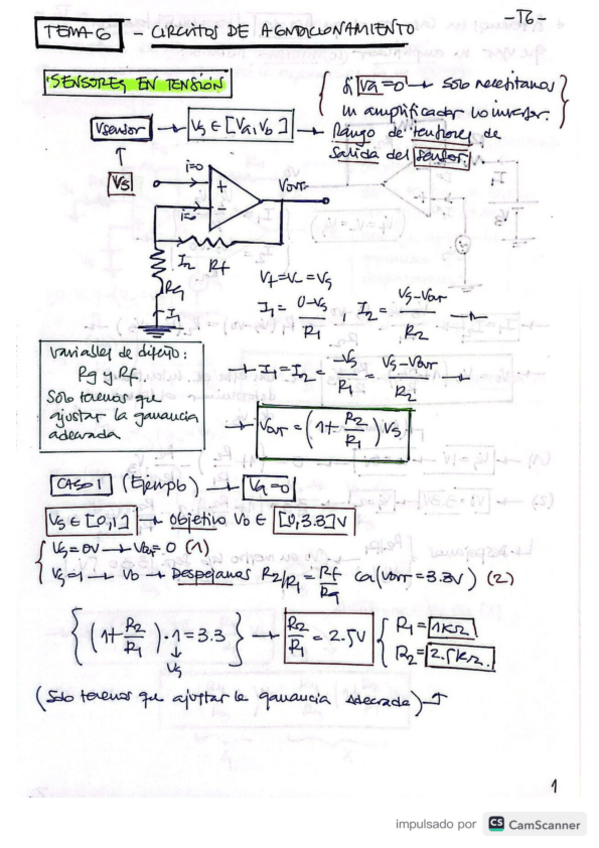 -T6-
TEMA 6 - CIRCUITOS DE ACONDICIONAMIENTO
SENSORES EN TENSIÓN
Si Va=0 → Solo necesitamos
un amplificador no inversor.
Vsensor → Vs ∈ [Va, Vb] → Rango de tensiones de
salida del sensor.
Vs
i=0
+
Vout
i=0
-
I2 Rf
Rg
I1
V+=V-=Vs
I1 = 0-Vs/R1 , I2 = Vs-Vout/R2 →
Variables de diseño:
Rg y Rf
Solo tenemos que
ajustar la ganancia
adecuada
→ I1=I2 = -Vs/R1 = Vs-Vout/R2 →
→ Vout = (1+ R2/R1) Vs
CASO 1 (Ejemplo) → Va=0
Vs ∈ [0,1] → objetivo Vo ∈ [0,3.3]V
Vs=0V → Vout=0 (1)
Vs=1 → Vo → Despejamos R2/R1 = Rf/Rg con (Vout=3.3V) (2)
{(1+ R2/R1) · 1 = 3.3} → R2/R1 = 2.5V { R1= 1KΩ
Vs
R2= 2.5KΩ.
(Solo tenemos que ajustar la ganancia adecuada)
1
impulsado por CS CamScanner